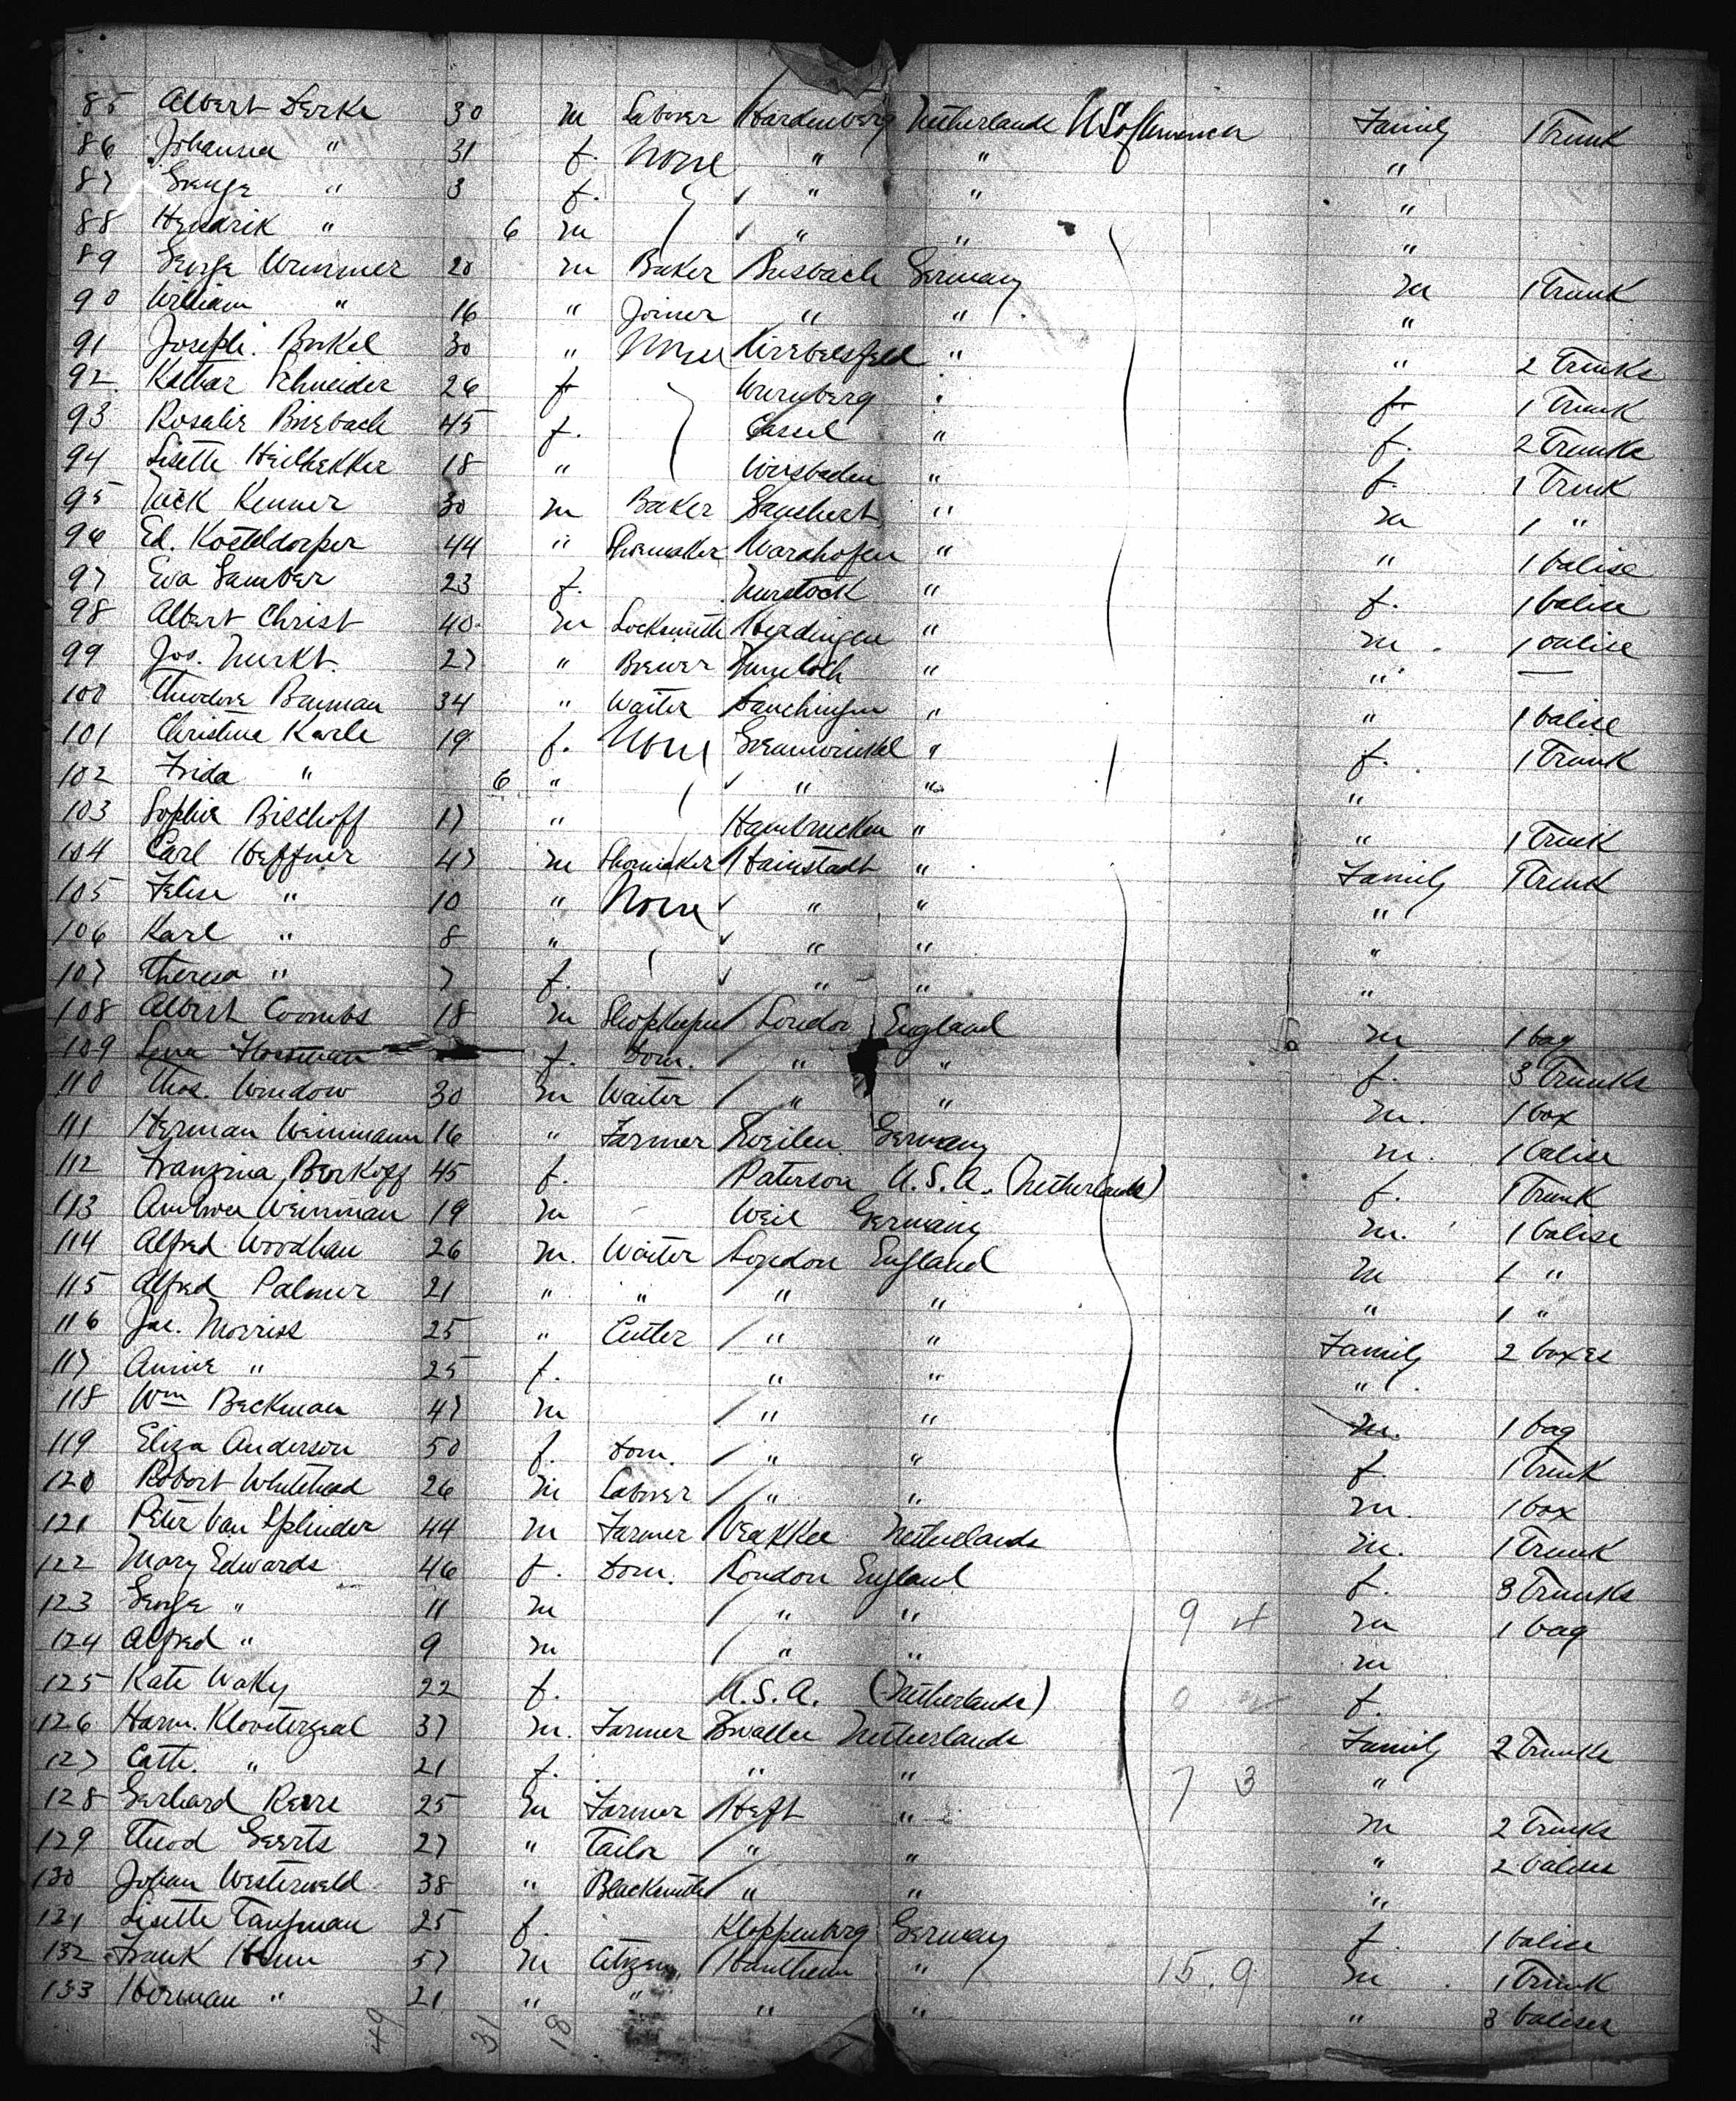 85 Albert Derks 30 m Laborer Hardenberg Netherlands U S of America Family 1 Trunk
86 Johanna " 31 f. None " " "
87 3 f. " " "
88 Hendrik " 6 m " " "
89 George Wimmer 20 m Baker Busbach Germany m 1 Trunk
90 William " 16 " Joiner " " "
91 Joseph. Bockel 30 " None " " 2 Trunks
92 Kathar Schneider 26 f Nurnberg " f 1 Trunk
93 Rosalie Bierbach 45 f. Cassel " f. 2 Trunks
94 Lisette 18 " Wiesbaden " f. 1 Trunk
95 Nick Kenner 30 m Baker " m 1 "
96 Ed. 44 " Shoemaker " " 1 valise
97 Eva Lamber 23 f. " f. 1 valise
98 Albert Christ 40 m Locksmith " m. 1 valise
99 Jos. 27 " Brewer " " —
100 Theodore Bauman 34 " Waiter " " 1 valise
101 Christine Karle 19 f. None " f. 1 Trunk
102 Frida " 6 " " " "
103 Sophie Bischoff 17 " Hambrucken " " 1 Trunk
104 Carl Heffner 47 m Shoemaker Hainstadt " Family 1 Trunk
105 Felix " 10 " None " " "
106 Karl " 8 " " " "
107 Theresa " 7 f. " " "
108 Albert Coombs 18 m Shopkeeper London England m 1 bag
109 Lena f. Dom. " " f. 3 Trunks
110 Thos. Window 30 m Waiter " " m. 1 box
111 Herman Weinmann 16 " Farmer Germany m. 1 valise
112 Franzina Berkoff 45 f. Paterson U.S.A. (Netherlands) f. 1 Trunk
113 Weinman 19 m Weil Germany m. 1 valise
114 Alfred Woodhau 26 m. Waiter London England m 1 "
115 Alfred Palmer 21 " " " " " 1 "
116 Jac. Morriss 25 " Cutter " " Family 2 boxes
117 Annie " 25 f. " " "
118 Wm Beckman 47 m " " m. 1 bag
119 Eliza Anderson 50 f. Dom. " " f. 1 Trunk
120 Robert Whitehead 26 m Laborer " " m. 1 box
121 Peter Van Splinder 44 m Farmer Netherlands m. 1 Trunk
122 Mary Edwards 46 f. Dom. London England f. 3 Trunks
123 George " 11 m " " 9 4 m 1 bag
124 Alfred " 9 m " " m
125 Kate Waky 22 f. U.S.A. (Netherlands) f.
126 Harm. 37 m. Farmer Zwolle Netherlands Family 2 Trunks
127 Cath. " 21 f. " " 7 3 "
128 Gerhard 25 m Farmer Heft " m 2 Trunks
129 Theod Geerts 27 " Tailor " " " 2 valises
130 Johan Westerveld 38 " Blacksmith " " "
131 Lisette 25 f. Kloppenburg Germany f. 1 valise
132 Frank 57 m Citizen " 15. 9 m 1 Trunk
133 Herman " 21 " " " " " 3 valises
49 31 18